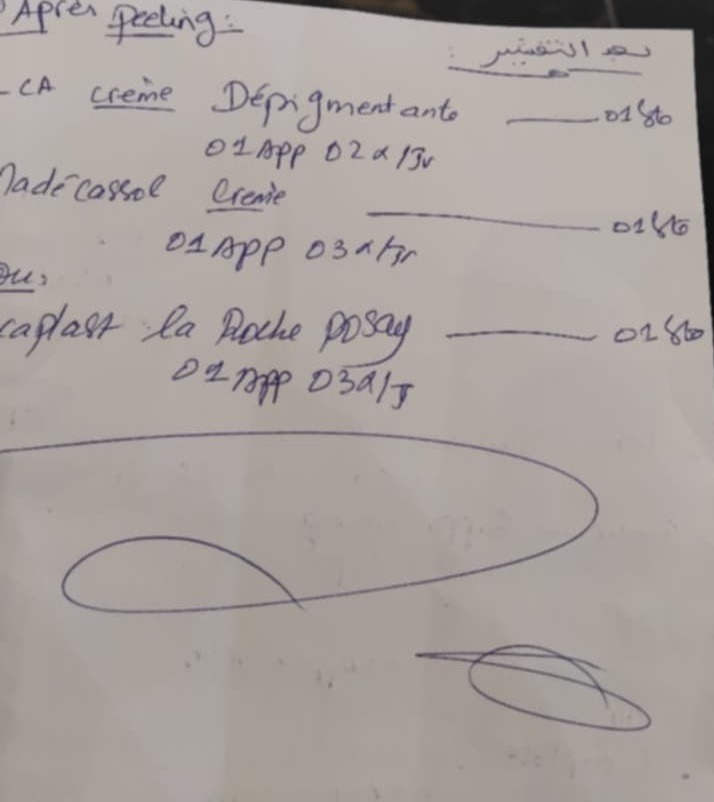 Après peeling :
بعد التقشير :
CA crème Dépigmentante — 01 Bte
01 App 02 x / Jr
Madécassol Creme — 01 Bte
01 App 03 x / Jr
Ou,
caplast la Roche posay — 01 Bte
01 App 03 x / J